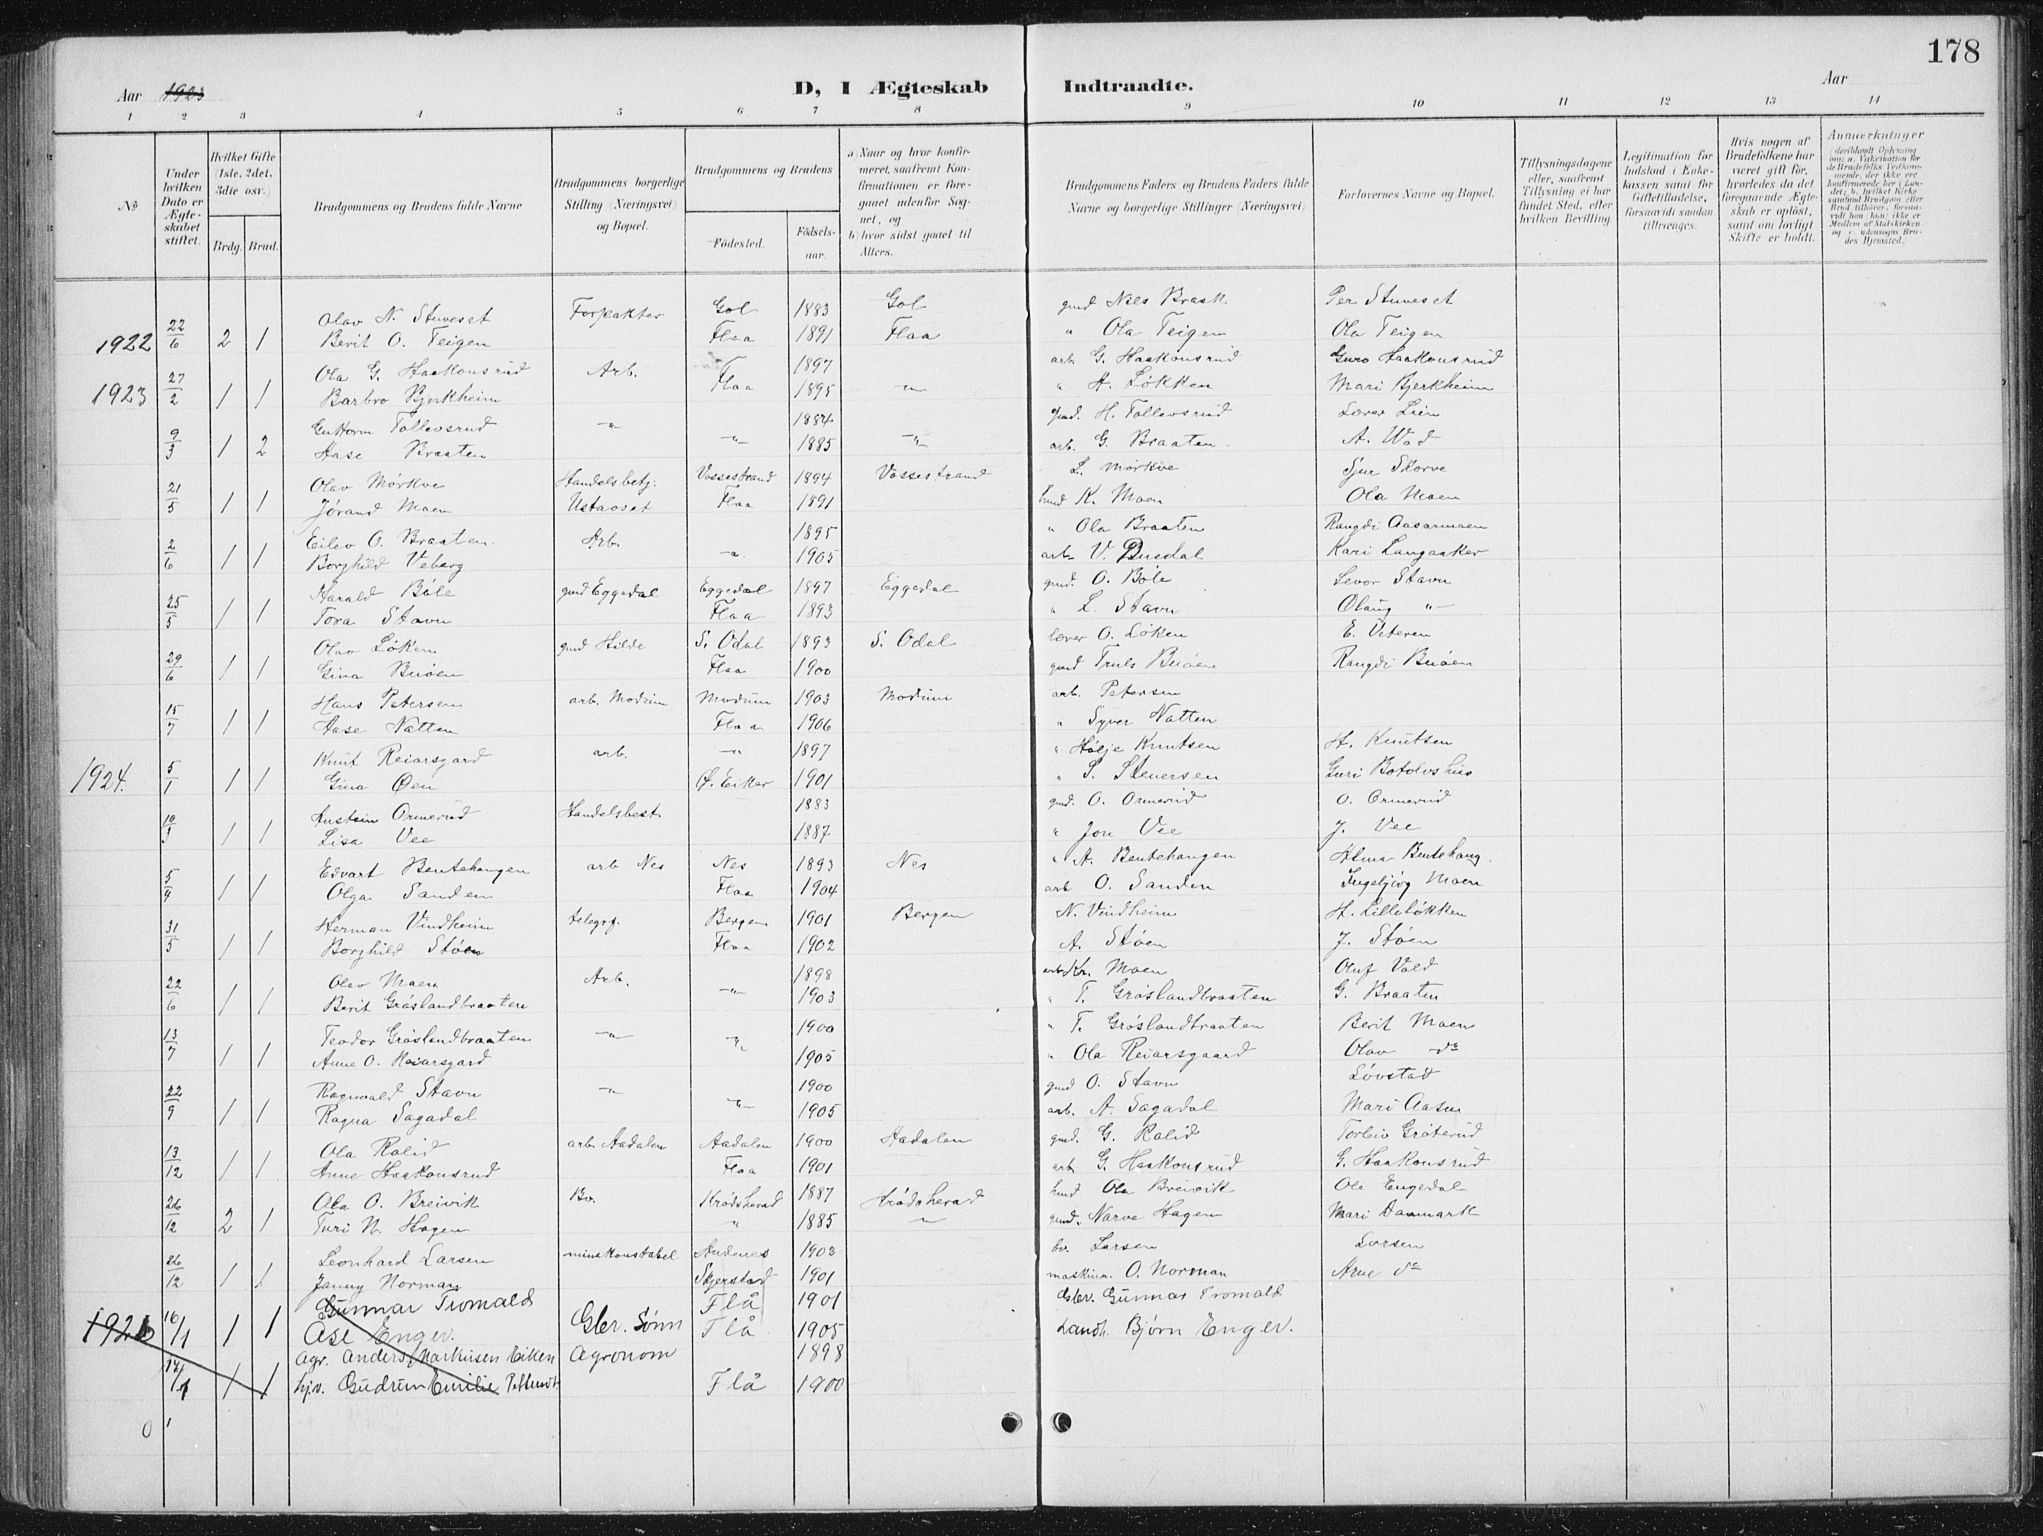 178
Aar 1923 D, I Ægteskab Indtraadte. Aar
1 2 3 4 5 6 7 8 9 10 11 12 13 14
No
Under hvilken Dato er Ægteskabet stiftet.
Hvilket Gifte (1ste, 2det, 3die osv.)
Brdg. Brud.
Brudgommens og Brudens fulde Navne
Brudgommens borgerlige Stilling (Næringsvei) og Bopæl.
Brudgommens og Brudens
Fødested. Fødselsaar.
a) Naar og hvor konfirmeret, saafremt Konfirmationen er foregaaet udenfor Sognet, og
b) hvor sidst gaaet til Alters.
Brudgommens Faders og Brudens Faders fulde Navne og borgerlige Stillinger (Næringsvei)
Forlovernes Navne og Bopæl.
Tillysningsdagene eller, saafremt Tillysning ei har fundet Sted, efter hvilken Bevilling.
Legitimation for Indskud i Enkekassen samt for Giftetilladelse, forsaavidt saadan tiltrænges.
Hvis nogen af Brudefolkene har været gift før, hvorledes da det foregaaende Ægteskab er opløst, samt om lovligt Skifte er holdt.
Anmerkninger (deriblandt Oplysning om: a. Vakcination for de Brudefolks Vedkommende, der ikke ere konfirmerede her i Landet; b. hvilket Kirkesamfund Brudgom eller Brud tilhører, forsaavidt han (hun) ikke er Medlem af Statskirken og c. udensogns Brudes Hjemsted.)
Olav N. Stuveset Forpakter Gol 1883 Gol gmd Nils Brask Per Stuveset
1922 22/6 2 1 Berit O. Teigen Flaa 1891 Flaa " Ola Teigen Ola Teigen
Ola G. Haakonsrud Arb. 1897 arb. G. Haakonsrud Guro Haakonsrud
1923 27/2 1 1 Barbro Bjerkheim Flaa 1895 " " A. Løkken Mari Bjerkheim
Guttorm Tollevsrud " 1884 gmd. H. Tollevsrud Lærer Lien
9/3 1 2 Aase Braaten " 1885 " arb. G. Braaten A. Wad
Olav Mørkve Handelsbetj. Vossestrand 1894 Vossestrand L. Mørkve Sjur Skorve
21/5 1 1 Jørand Moen Ustaoset Flaa 1891 K. Moen Ola Moen
Eilev O. Braaten Arb. 1895 " Ola Braaten Rangdi Aasarmoen
2/6 1 1 Borghild Veberg " 1905 arb V. Busdal Kari Langaaker
Harald Bøle gmd Eggedal Eggedal 1897 Eggedal gmd. O. Bøle Levor Stavn
25/5 1 1 Tora Stavn Flaa 1893 " L. Stavn Olaug "
Olav Løken gmd Hilde S. Odal 1893 S. Odal lærer O. Løken E. Veteren
29/6 1 1 Gina Buøen Flaa 1900 gmd Truls Buøen Rangdi Buøen
Hans Petersen arb. Modum Modum 1903 Modum arb. Petersen
15/7 1 1 Aase Natten Flaa 1906 " Syver Natten
Knut Reiarsgard arb. " 1897 " Hølje Knutsen H. Knutsen
1924. 5/1 1 1 Gina Øen Ø. Eiker 1901 " S. Stenersen Guri Botolvshus
Austein Ormerud Handelsbest. 1883 gmd. O. Ormerud O. Ormerud
1 1 Lisa Vee 1887 " Jon Vee J. Vee
Edvart Bentehaugen arb Nes Nes 1893 Nes " A. Bentehaugen Alma Bentehaug.
5/4 1 1 Olga Sanden Flaa 1904 arb O. Sanden Ingebjørg Moen
Herman Vindheim telegrf. Bergen 1901 Bergen N. Vindheim H. Lilleløkken
31/5 1 1 Borghild Støen Flaa 1902 A. Støen J. Støen
Olav Moen Arb. 1898 arb Kr. Moen Oluf Vold
22/6 1 1 Berit Grøslandbraaten " 1903 " T. Grøslandbraaten G. Braaten
Teodor Grøslandbraaten " 1900 " T. Grøslandbraaten Berit Moen
13/7 1 1 Anne O. Reiarsgard " 1905 " Ola Reiarsgaard Olav do
Ragnvald Stavn " 1900 gmd O. Stavn Løvstad
22/9 1 1 Ragna Sagadal " 1905 arb. A. Sagadal Mari Aasen
Ola Ralid arb. Aadalen Aadalen 1900 Aadalen gmd. G. Ralid Torleiv Grøterud
13/12 1 1 Anne Haakonsrud Flaa 1901 arb G. Haakonsrud G. Haakonsrud
Ola O. Breivik Bv. Krødsherad 1887 Krødsherad hmd Ola Breivik Ole Engedal
26/12 2 1 Turi N. Hagen " 1885 " gmd. Narve Hagen Mari Danmark
Leonhard Larsen minekonstabel Andenes 1903 bv. Larsen Larsen
26/12 1 1 Jenny Norman Skjerstad 1901 maskinm. O. Norman Arne do
Gunnar Tromald Flå 1901 Gbr. Gunnar Tromald
1926 16/1 1 1 Åse Enger. Gbr. Sønn Flå 1905 Landh. Bjørn Enger.
Agr. Anders Markusen Eiken Agronom 1898
14/1 1 1 hjv. Gudrun Emilie Flå 1900
0 1